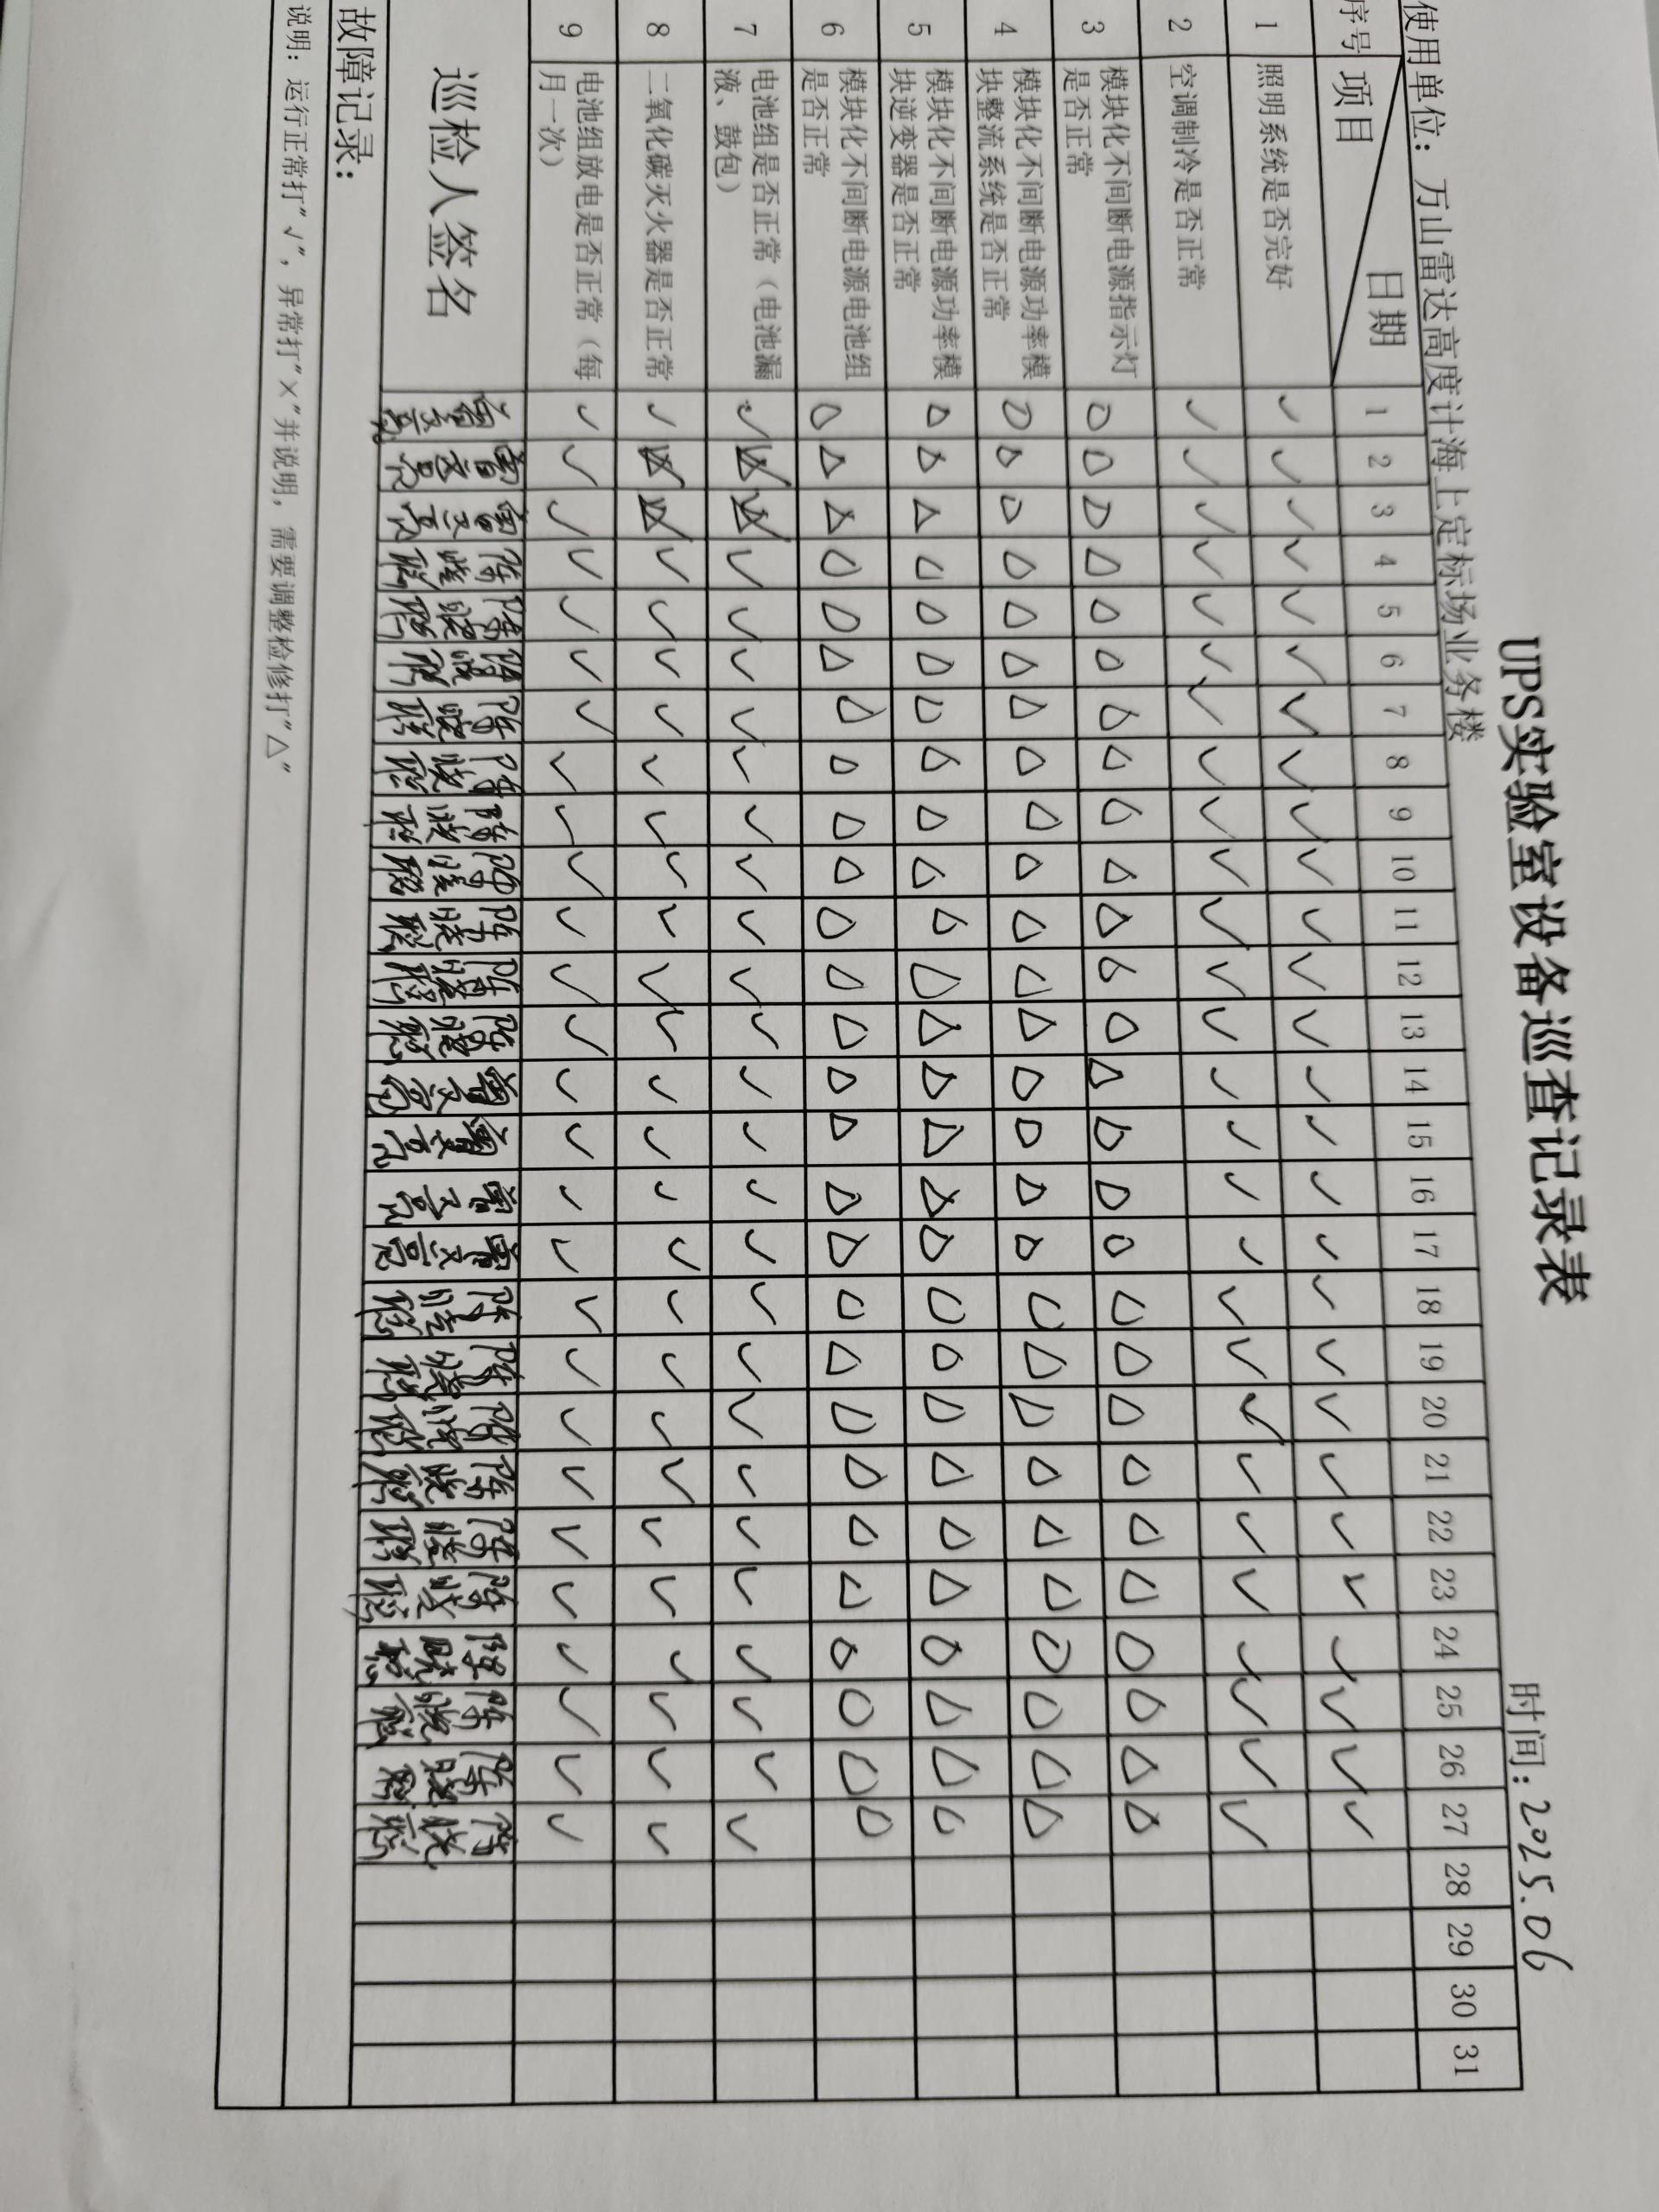 UPS实验室设备巡查记录表
使用单位：万山雷达高度计海上定标场业务楼 时间：2025.06
序号 项目 日期 1 2 3 4 5 6 7 8 9 10 11 12 13 14 15 16 17 18 19 20 21 22 23 24 25 26 27 28 29 30 31
1 照明系统是否完好 ✓ ✓ ✓ ✓ ✓ ✓ ✓ ✓ ✓ ✓ ✓ ✓ ✓ ✓ ✓ ✓ ✓ ✓ ✓ ✓ ✓ ✓ ✓ ✓ ✓ ✓ ✓
2 空调制冷是否正常 ✓ ✓ ✓ ✓ ✓ ✓ ✓ ✓ ✓ ✓ ✓ ✓ ✓ ✓ ✓ ✓ ✓ ✓ ✓ ✓ ✓ ✓ ✓ ✓ ✓ ✓ ✓
3 模块化不间断电源指示灯
是否正常 △ △ △ △ △ △ △ △ △ △ △ △ △ △ △ △ △ △ △ △ △ △ △ △ △ △ △
4 模块化不间断电源功率模
块整流系统是否正常 △ △ △ △ △ △ △ △ △ △ △ △ △ △ △ △ △ △ △ △ △ △ △ △ △ △ △
5 模块化不间断电源功率模
块逆变器是否正常 △ △ △ △ △ △ △ △ △ △ △ △ △ △ △ △ △ △ △ △ △ △ △ △ △ △ △
6 模块化不间断电源电池组
是否正常 △ △ △ △ △ △ △ △ △ △ △ △ △ △ △ △ △ △ △ △ △ △ △ △ △ △ △
7 电池组是否正常（电池漏
液、鼓包） ✓ ✓ ✓ ✓ ✓ ✓ ✓ ✓ ✓ ✓ ✓ ✓ ✓ ✓ ✓ ✓ ✓ ✓ ✓ ✓ ✓ ✓ ✓ ✓ ✓
8 二氧化碳灭火器是否正常 ✓ ✓ ✓ ✓ ✓ ✓ ✓ ✓ ✓ ✓ ✓ ✓ ✓ ✓ ✓ ✓ ✓ ✓ ✓ ✓ ✓ ✓ ✓ ✓ ✓
9 电池组放电是否正常（每
月一次） ✓ ✓ ✓ ✓ ✓ ✓ ✓ ✓ ✓ ✓ ✓ ✓ ✓ ✓ ✓ ✓ ✓ ✓ ✓ ✓ ✓ ✓ ✓ ✓ ✓ ✓ ✓
巡检人签名
故障记录：
说明：运行正常打"√"，异常打"×"并说明，需要调整检修打"△"